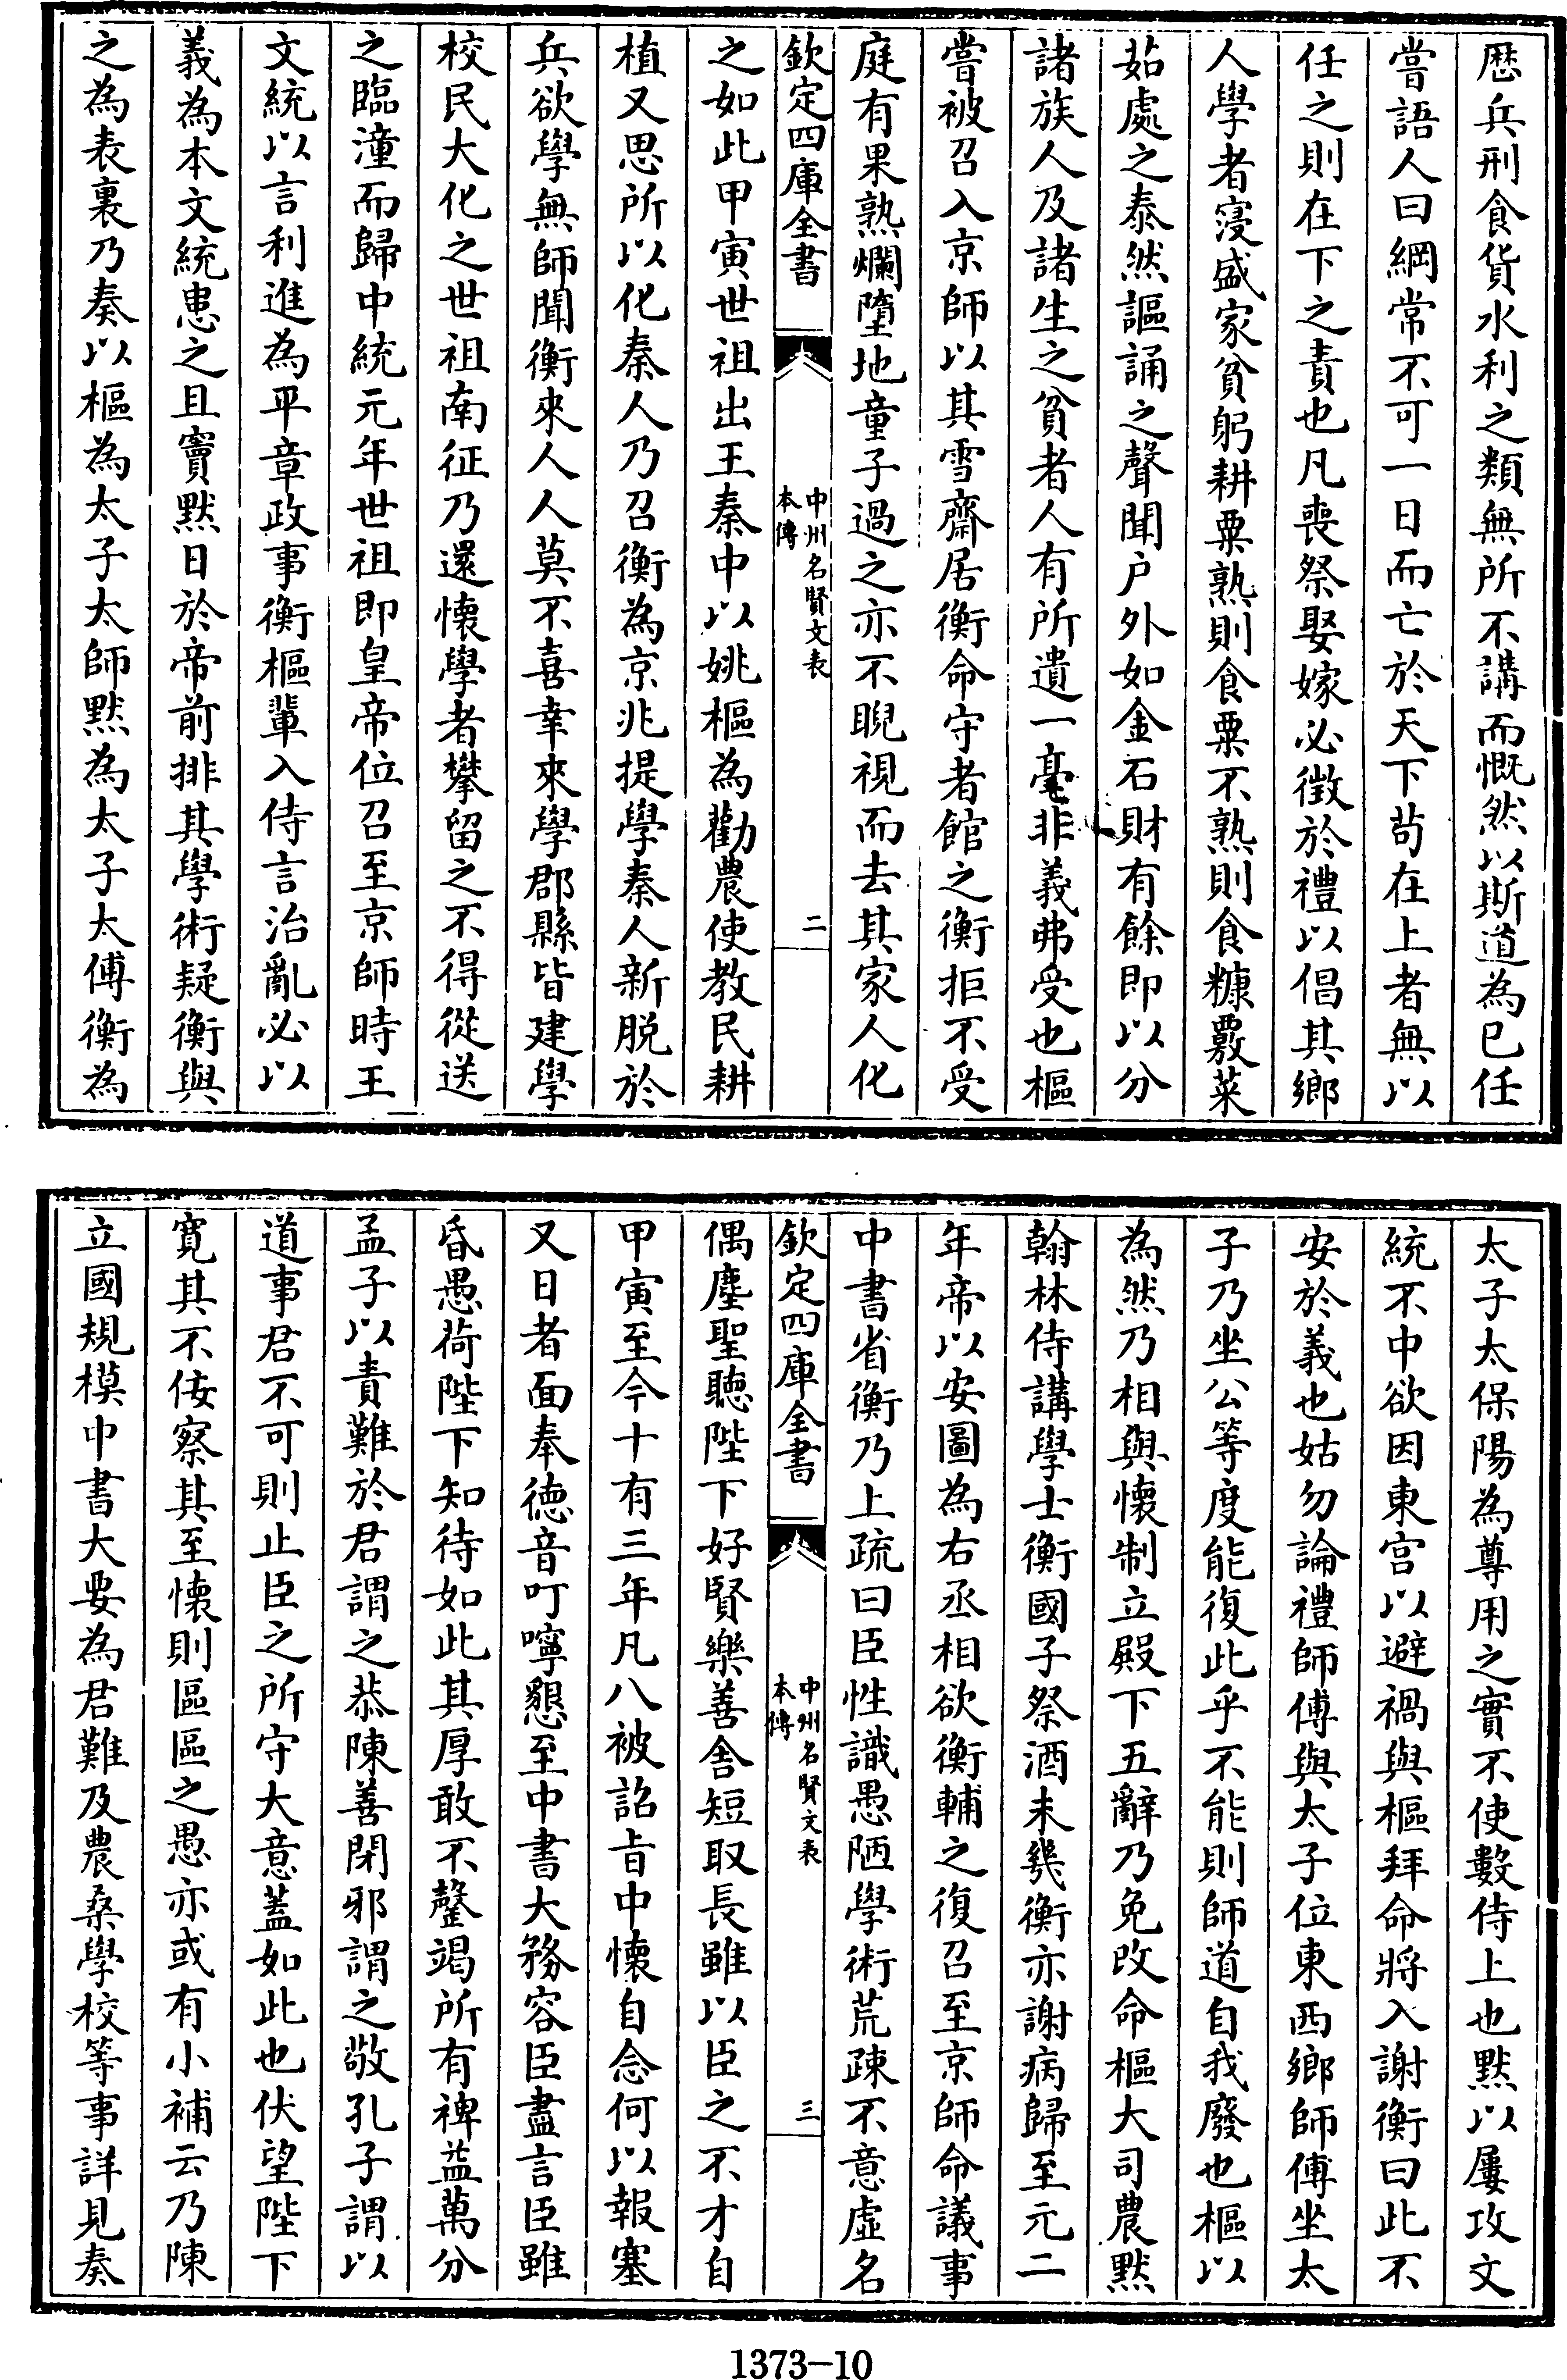 厯兵刑食貨水利之類無所不講而慨然以斯道為已任
嘗語人曰綱常不可一日而亡於天下茍在上者無以
任之則在下之責也凡喪祭娶嫁必徴於禮以倡其鄉
人學者寖盛家貧躬耕粟熟則食粟不熟則食糠覈菜
茹處之泰然謳誦之聲聞户外如金石財有餘即以分
諸族人及諸生之貧者人有所遺一毫非義弗受也樞
嘗被召入京師以其雪齋居衡命守者館之衡拒不受
庭有果熟爛墮地童子過之亦不睨視而去其家人化
欽定四庫全書
中州名賢文表
本傳
二
之如此甲寅世祖出王秦中以姚樞為勸農使教民耕
植又思所以化秦人乃召衡為京兆提學秦人新脱於
兵欲學無師聞衡來人人莫不喜幸來學郡縣皆建學
校民大化之世祖南征乃還懷學者攀留之不得從送
之臨潼而歸中統元年世祖即皇帝位召至京師時王
文統以言利進為平章政事衡樞輩入侍言治亂必以
義為本文統患之且竇黙日於帝前排其學術疑衡與
之為表裏乃奏以樞為太子太師黙為太子太傅衡為
太子太保陽為尊用之實不使數侍上也黙以屢攻文
統不中欲因東宫以避禍與樞拜命將入謝衡曰此不
安於義也姑勿論禮師傅與太子位東西鄉師傅坐太
子乃坐公等度能復此乎不能則師道自我廢也樞以
為然乃相與懷制立殿下五辭乃免改命樞大司農黙
翰林侍講學士衡國子祭酒未幾衡亦謝病歸至元二
年帝以安圖為右丞相欲衡輔之復召至京師命議事
中書省衡乃上疏曰臣性識愚陋學術荒疎不意虛名
欽定四庫全書
中州名賢文表
本傳
三
偶塵聖聽陛下好賢樂善舍短取長雖以臣之不才自
甲寅至今十有三年凡八被詔㫖中懷自念何以報塞
又日者面奉徳音叮嚀懇至中書大務容臣盡言臣雖
昏愚荷陛下知待如此其厚敢不罄竭所有裨益萬分
孟子以責難於君謂之恭陳善閉邪謂之敬孔子謂以
道事君不可則止臣之所守大意蓋如此也伏望陛下
寛其不佞察其至懷則區區之愚亦或有小補云乃陳
立國規模中書大要為君難及農桑學校等事詳見奏
1373-10